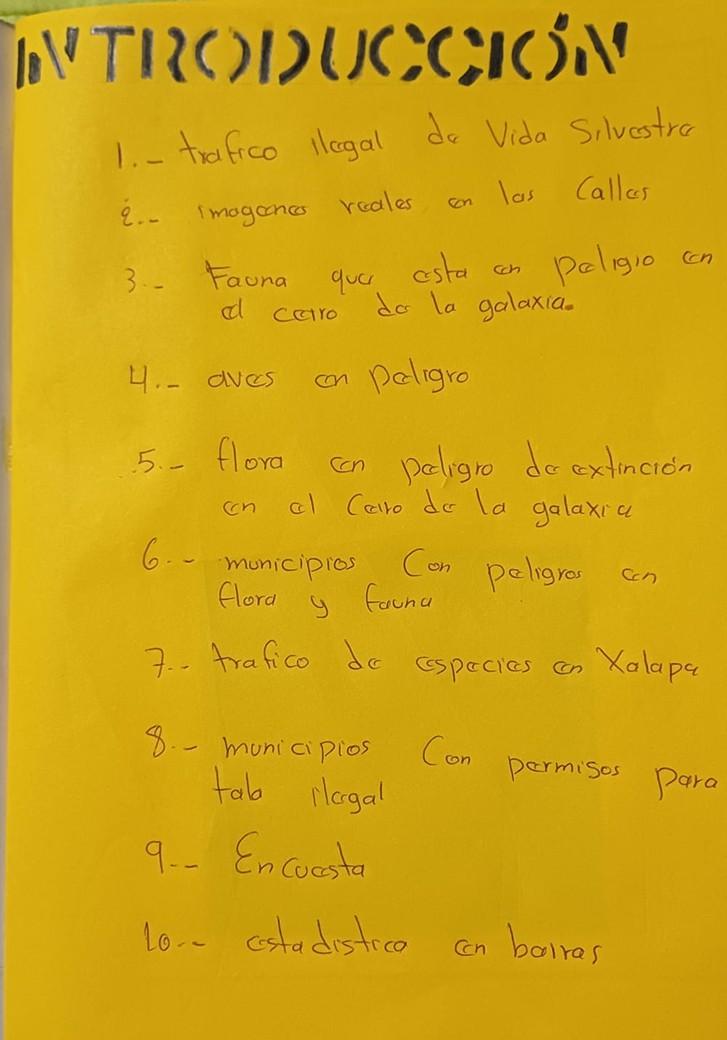 INTRODUCCIÓN
1.- trafico ilegal de Vida Silvestre
2.- imagenes reales en las Calles
3.- Fauna que esta en peligio en
el cerro de la galaxia.
4.- aves en peligro
5.- flora en peligro de extinción
en el Cerro de la galaxia
6.- municipios Con peligros en
flora y fauna
7.- trafico de especies en Xalapa
8.- municipios Con permisos para
tala ilegal
9.- Encuesta
10.- estadistica en barras